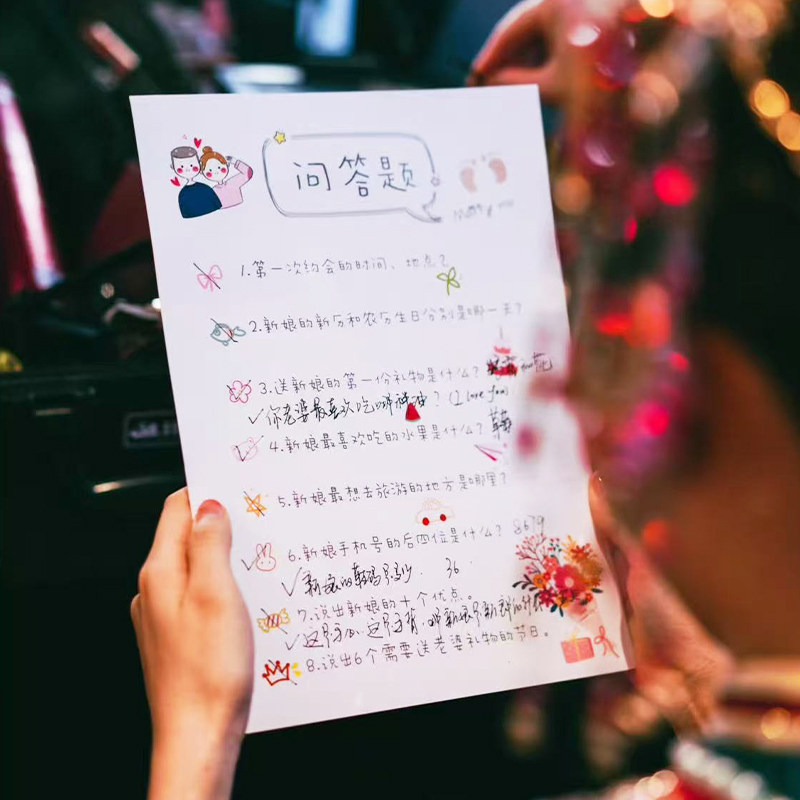 问答题
1.第一次约会的时间、地点?
2.新娘的新历和农历生日分别是哪一天?
3.送新娘的第一份礼物是什么?
✓你老婆最喜欢吃哪种油? (I love you)
4.新娘最喜欢吃的水果是什么?
5.新娘最想去旅游的地方是哪里?
6.新娘手机号的后四位是什么? 8679
✓新娘的鞋码是多少. 36
7.说出新娘的十个优点。
✓这是手心、这是手背,
8.说出6个需要送老婆礼物的节日。